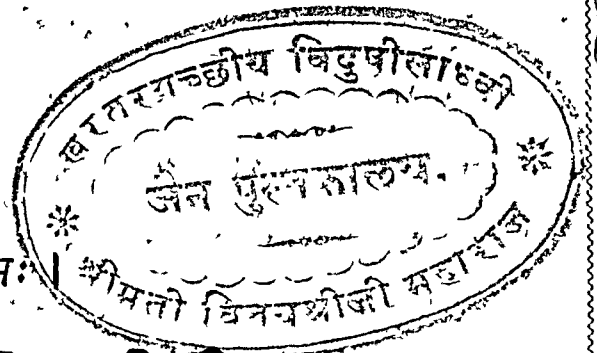 खरतरगच्छीय विदुषीसाध्वी
जैन पुस्तकालय.
श्रीमती विनयश्रीजी महाराज
मः ।